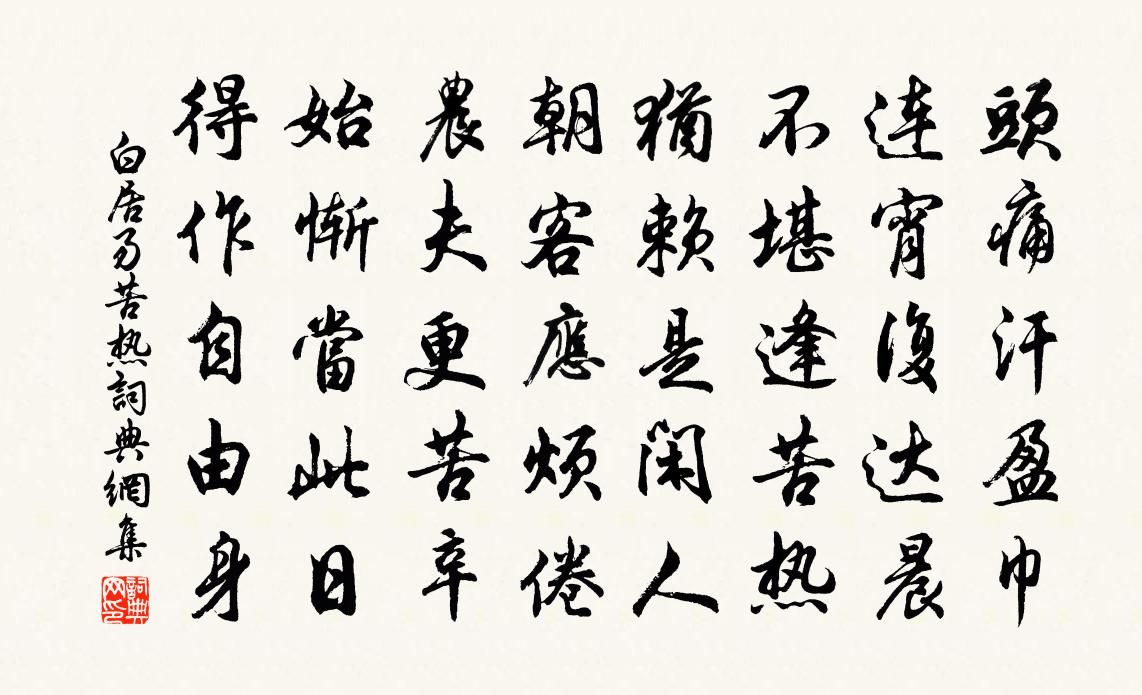 頭痛汗盈巾
連宵復达晨
不堪逢苦热
猶賴是閑人
朝客應煩倦
農夫更苦辛
始慚當此日
得作自由身
白居易苦热詞典網集
詞典網印